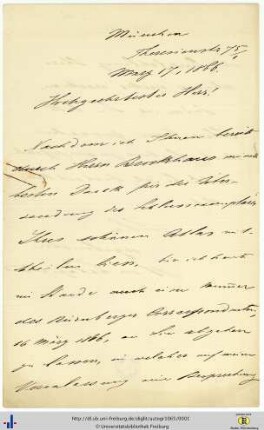 München
Theresienstr. 75/I
März 17, 1866.
Hochgeehrtester Herr!
Nachdem ich Ihnen bereits
durch Herrn Brockhaus meinen
besten Dank für die Über-
sendung des
Ihres schönen Atlas mit-
theilen liess, bin ich heute
im Stande auch eine Nummer
des Nürnberger Correspondenten,
16 März 1866, an Sie abgehen
zu lassen, in welcher auf meine
Veranlassung eine Besprechung
http://dl.ub.uni-freiburg.de/diglit/
© Universitätsbibliothek Freiburg